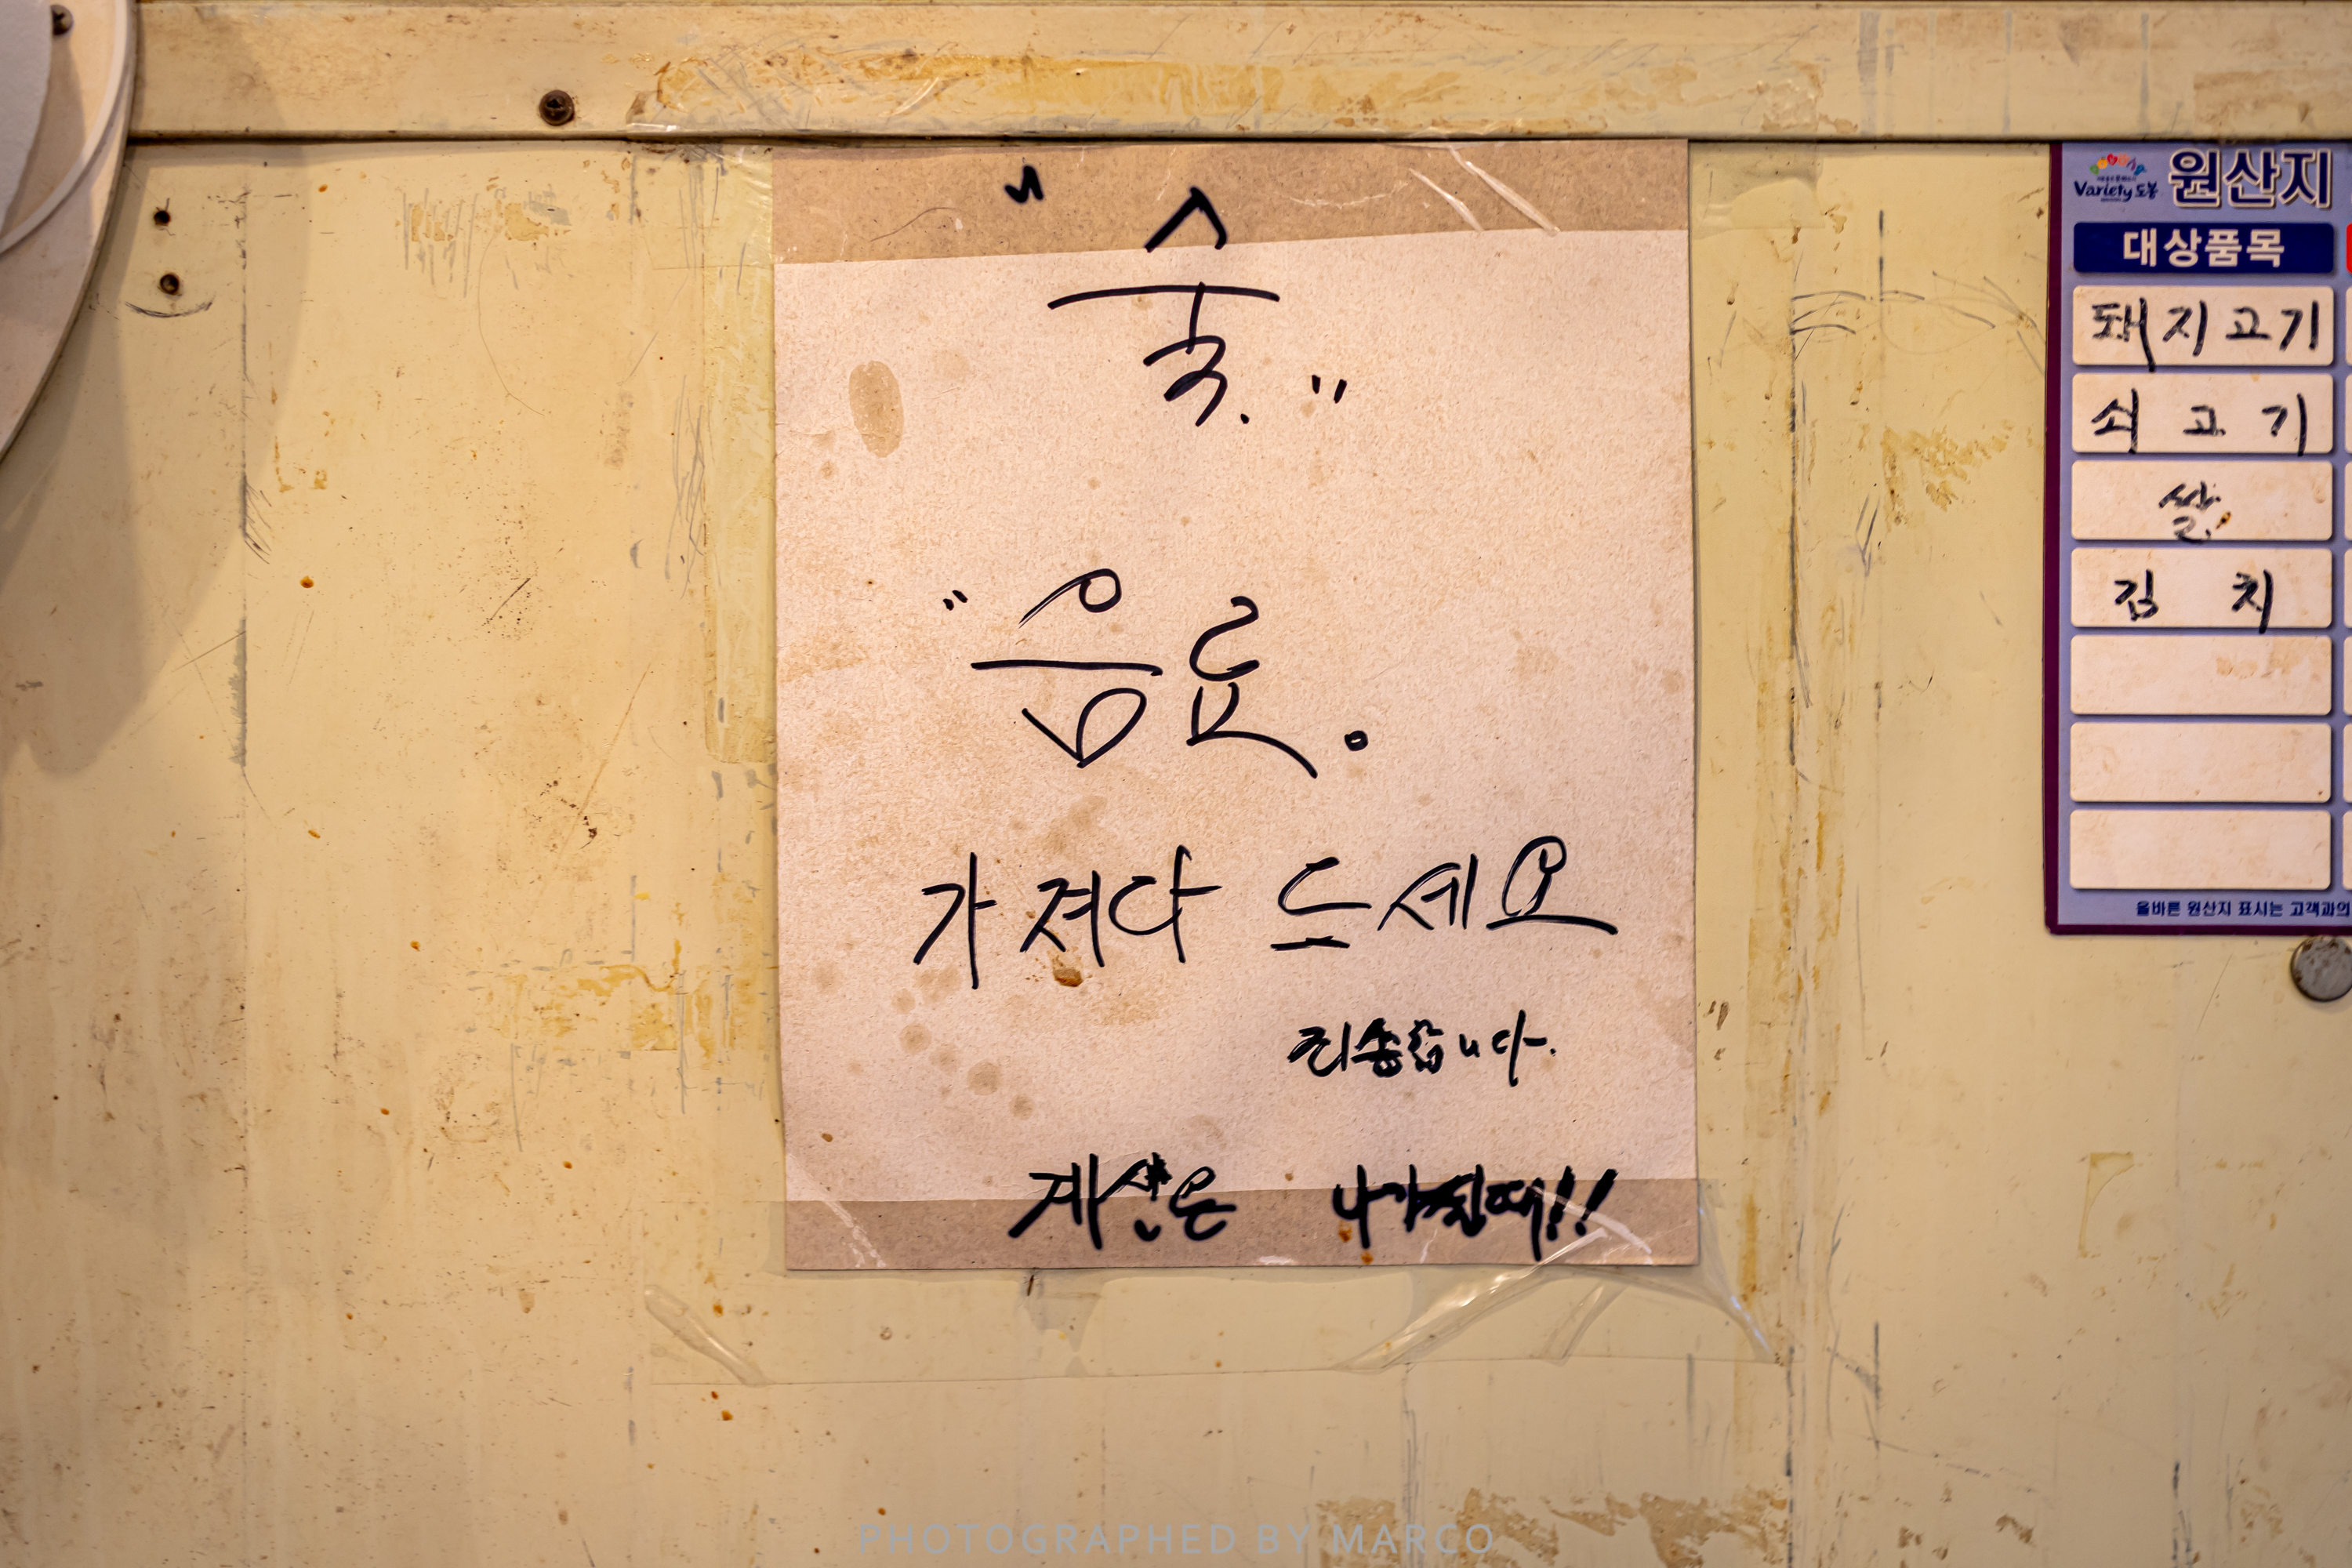 "술."
"음료.
가져다 드세요
죄송합니다.
계산은 나가실때!!
Variety 도봉 원산지
대상품목
돼지고기
쇠고기
쌀
김치
올바른 원산지 표시는 고객과의
PHOTOGRAPHED BY MARCO